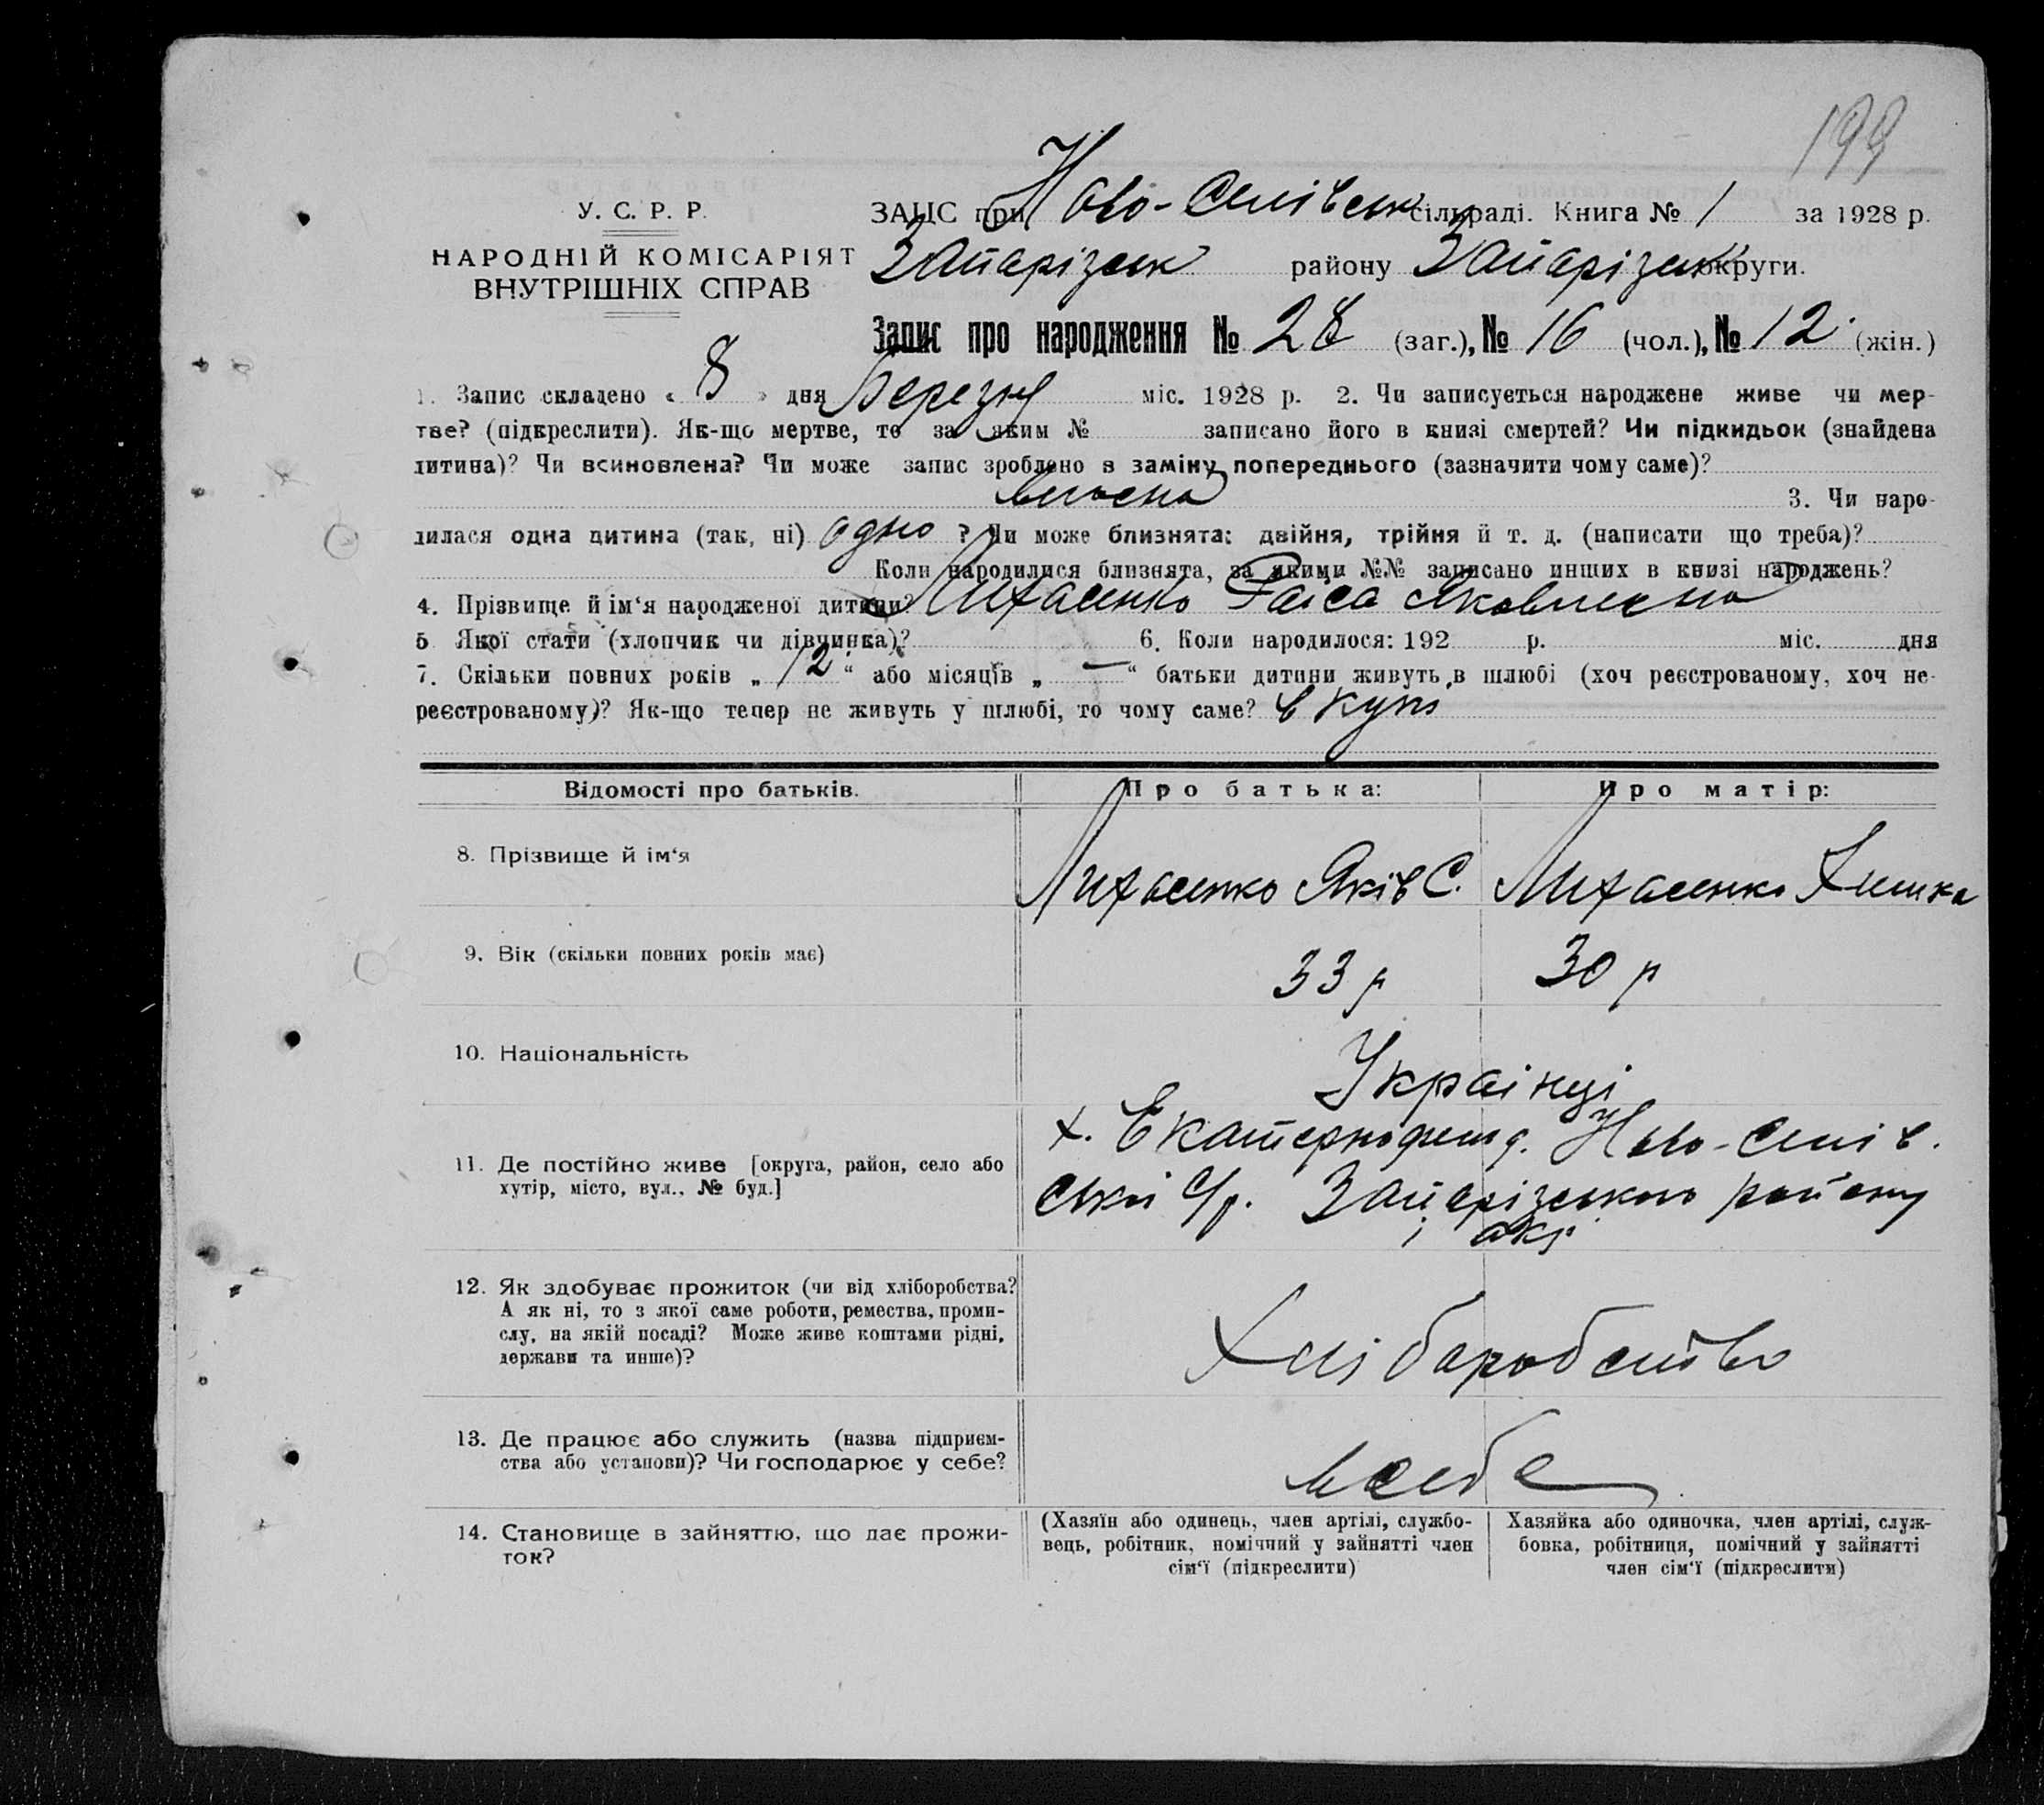 199
У. С. Р. Р.
НАРОДНІЙ КОМІСАРІЯТ
ВНУТРІШНІХ СПРАВ
ЗАЦС при Ново-Селівськ сільраді. Книга № 1 за 1928 р.
Запарізськ району Запарізськ округи.
Запис про народження № 28 (заг.), № 16 (чол.), № 12 (жін.)
1. Запис складено « 8 » дня Березня міс. 1928 р. 2. Чи записується народжене живе чи мер-
тве? (підкреслити). Як-що мертве, то за яким № записано його в книзі смертей? Чи підкидьок (знайдена
дитина)? Чи всиновлена? Чи може запис зроблено в заміну попереднього (зазначити чому саме)?
3. Чи наро-
дилася одна дитина (так, ні) одно ? Чи може близнята: двійня, трійня й т. д. (написати що треба)?
Коли народилися близнята, за якими №№ записано инших в книзі народжень?
4. Прізвище й ім‘я народженої дитини? Лихасенко Раіса Яковлевна
5 Якої стати (хлопчик чи дівчинка)? 6. Коли народилося: 192 р. міс. дня
7. Скільки повних років „ 12 “ або місяців „ — “ батьки дитини живуть в шлюбі (хоч реєстрованому, хоч не-
реєстрованому)? Як-що тепер не живуть у шлюбі, то чому саме? в купі
Відомості про батьків. Про батька: Про матір:
8. Прізвище й ім‘я Лихасенко Яків С. Лихасенко
9. Вік (скільки повних років має) 33 р 30 р
10. Національність Украінці
11. Де постійно живе [округа, район, село або
хутір, місто, вул., № буд.]
х. Ново-Селів.
ської с/р. Запарізського району
і окр.
12. Як здобуває прожиток (чи від хліборобства?
А як ні, то з якої саме роботи, ремества, проми-
слу, на якій посаді? Може живе коштами рідні,
держави та инше)?
Хліборобство
13. Де працює або служить (назва підприєм-
ства або установи)? Чи господарює у себе?
в себе
14. Становище в зайняттю, що дає прожи-
ток?
(Хазяїн або одинець, член артілі, службо-
вець, робітник, помічний у зайнятті член
сім‘ї (підкреслити)
Хазяйка або одиночка, член артілі, служ-
бовка, робітниця, помічний у зайнятті
член сім‘ї (підкреслити)